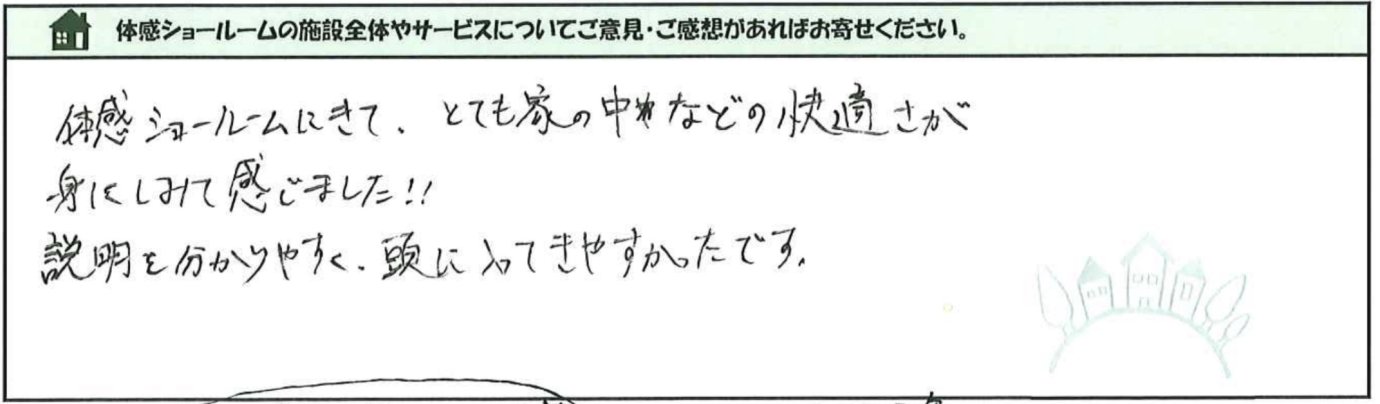 体感ショールームの施設全体やサービスについてご意見・ご感想があればお寄せください。
体感ショールームにきて、とても家の中などの快適さが
身にしみて感じました!!
説明を分かりやすく、頭に入ってきやすかったです。